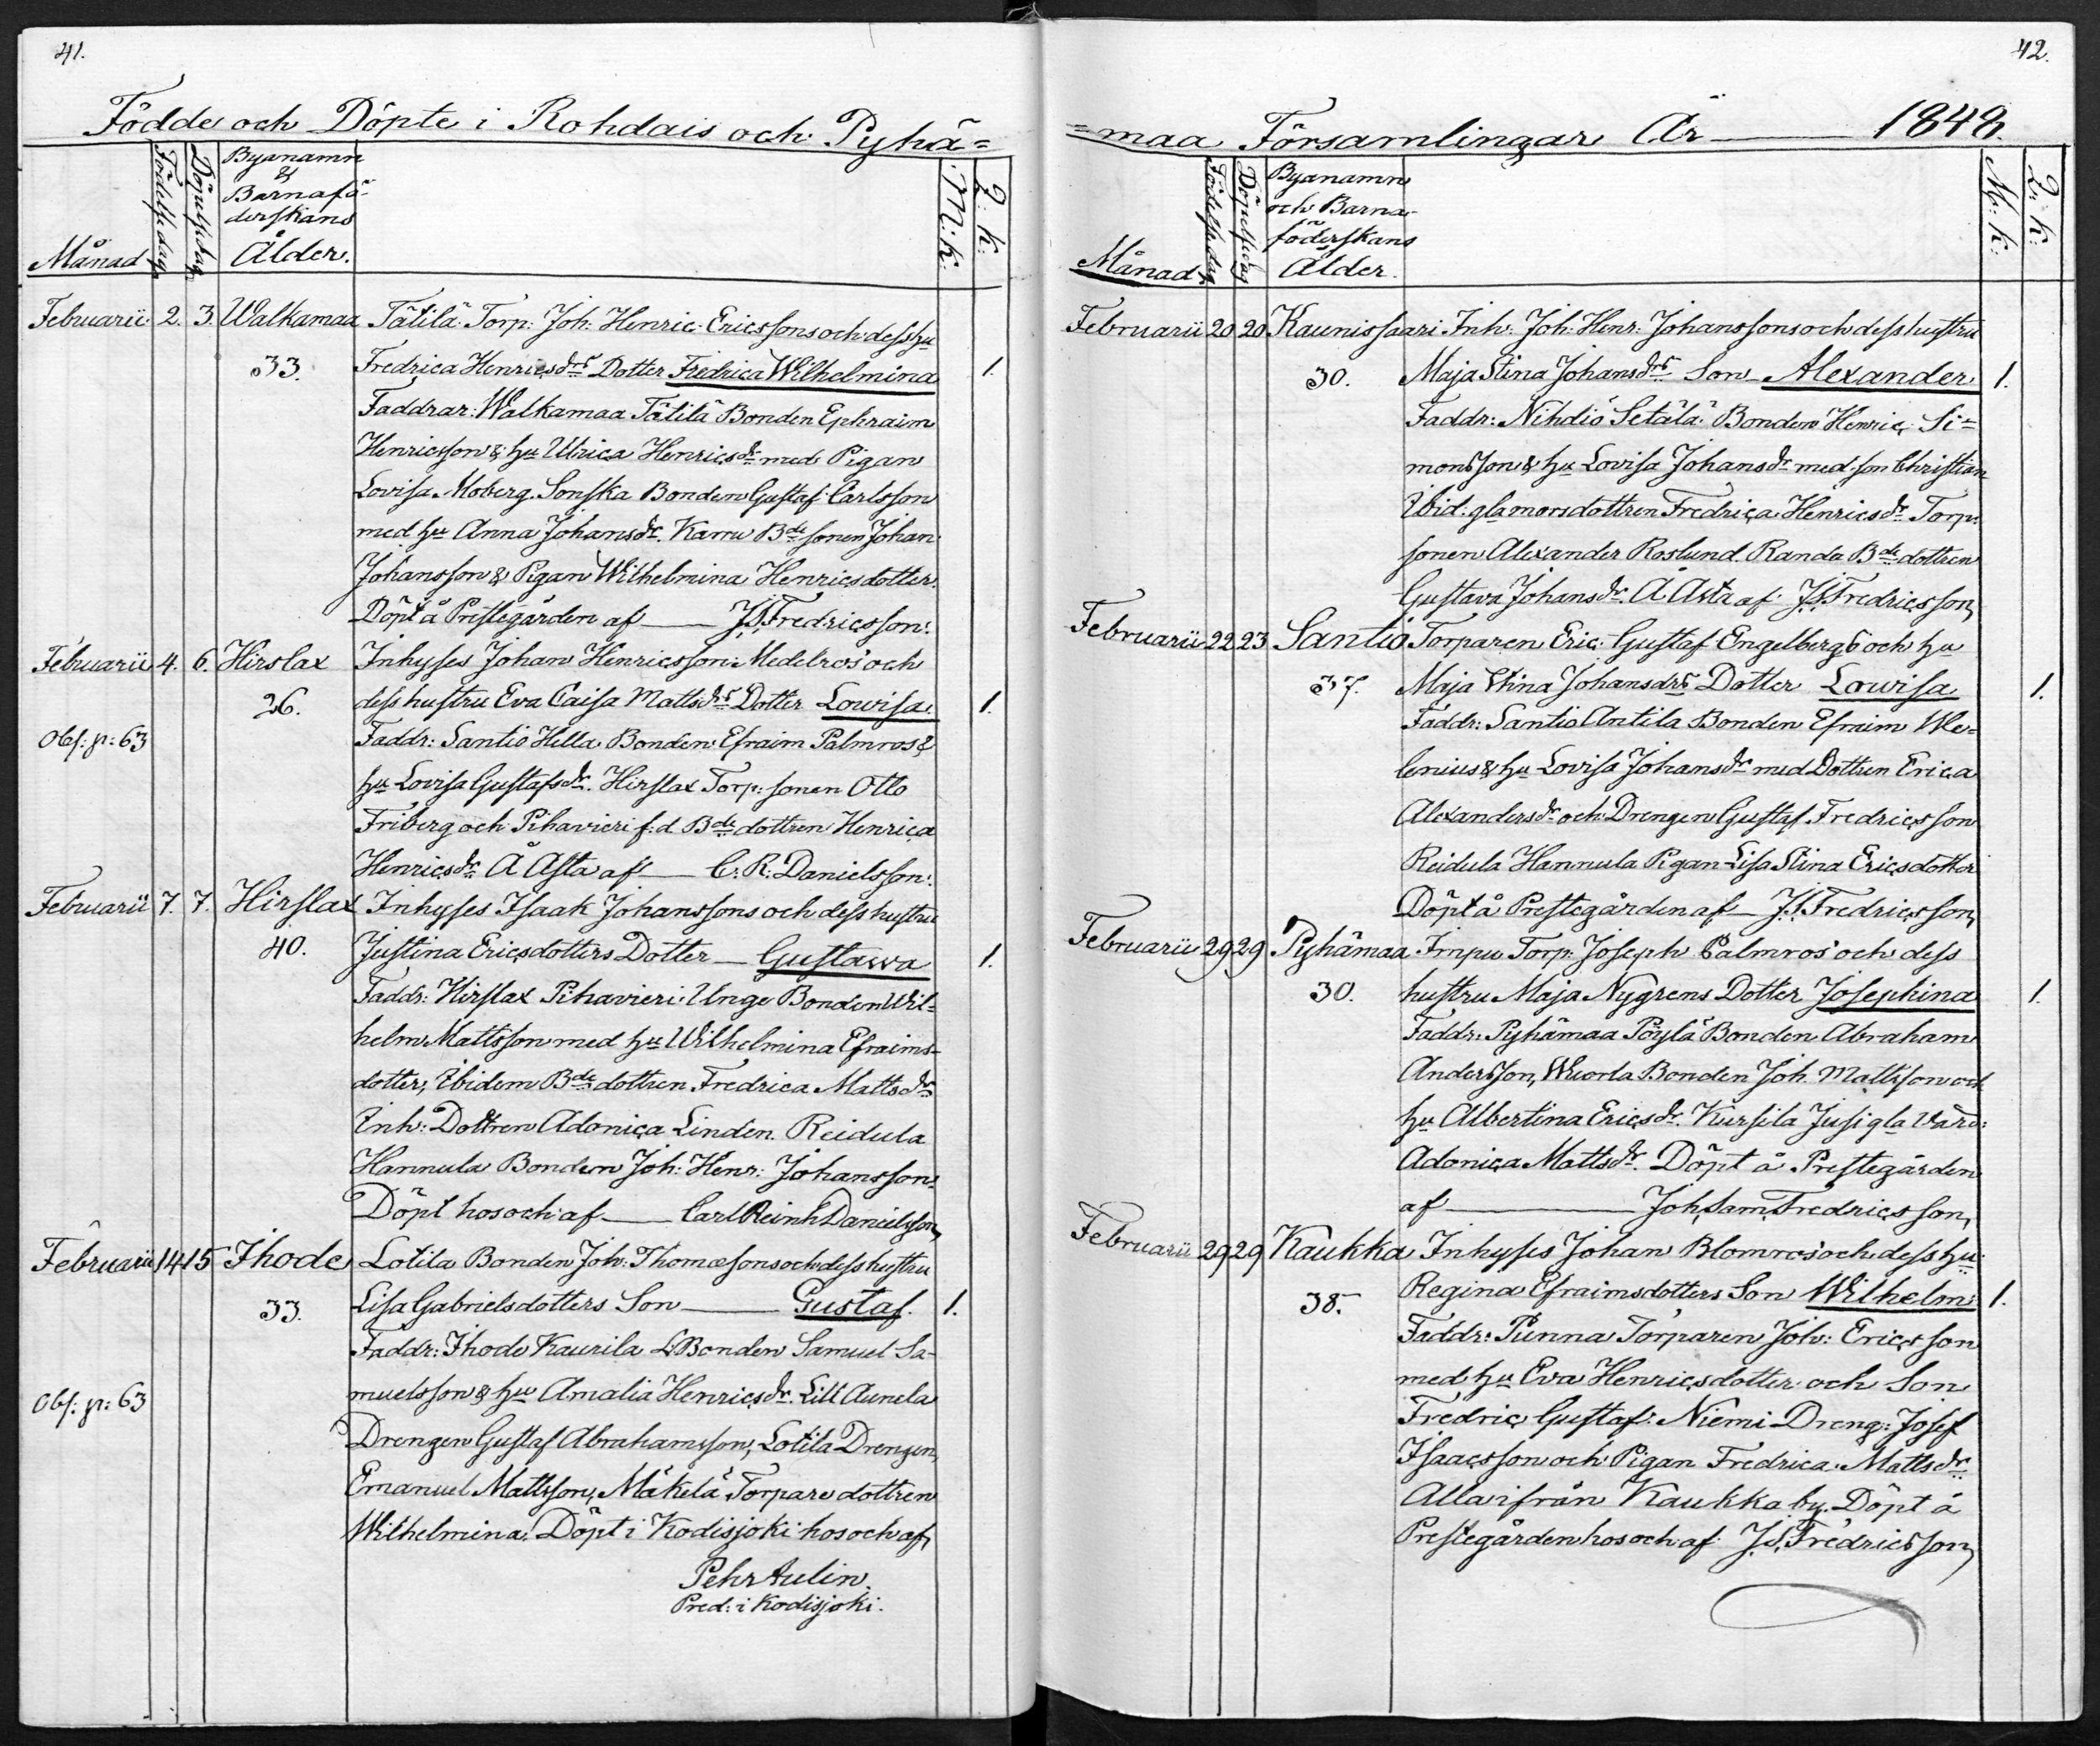 41.
Födde och Döpte i Rohdais och Pyhä=
Månad
Födelse dag
Döpelse dag
Byanamn
&
Barnafö-
derskans
Ålder.
M: k:
Q: k:
Februarii 2. 3. Walkamaa Tätilä Torp: Joh: Henric Ericssons och dess hu
33. Fredrica Henricsdrs Dotter Fredrica Wilhelmina 1.
Faddrar: Walkamaa Tätilä Bonden Ephraim
Henricsson & hu Ulrica Henricsdr med Pigan
Lovisa Moberg. Sonska Bonden Gustaf Carlsson
med hu Anna Johansdr. Karru Bde sonen Johan
Johansson & Pigan Wilhelmina Henricsdotter.
Döpt å Prestegården af — J.S. Fredricsson.
Februarii 4. 6. Hirslax Inhyses Johan Henricsson Medelros och
26. dess hustru Eva Caisa Mattsdrs Dotter Lowisa 1.
Obs: p: 63 Faddr: Santio Hella Bonden Efraim Palmros &
hu Lovisa Gustafsdr. Hirslax Torp: sonen Otto
Friberg och Pihavieri f:d Bde dottren Henrica
Henricsdr Å Asta af — C. R: Danielsson.
Februarii 7. 7. Hirslax Inhyses Isaak Johanssons och dess hustru
40. Justina Ericsdotters Dotter — Gustawa 1.
Faddr: Hirslax Pihavieri Unge Bonden Wil-
helm Mattsson med hu Wilhelmina Efraims-
dotter, Ibidem Bde dottren Fredrica Mattsdr
Inh: Dottren Adonica Linden. Reidula
Hannula Bonden Joh: Henr: Johansson.
Döpt hos och af — Carl Reinh Danielsson,
Februarii 14 15 Ihode Lotila Bonden Joh: Thomæsons och dess hustru
33. Lisa Gabrielsdotters Son — Gustaf. 1.
Faddr: Ihode Kaurila Bonden Samuel Sa-
Obs: p: 63 muelsson & hu Amalia Henricsdr. Lill Aunela
Drengen Gustaf Abrahamsson, Lotila Drengen
Emanuel Mattsson, Mäkelä Torpare dottren
Wilhelmina. Döpt i Kodisjoki hos och af,
Pehr Aulin.
Pred: i Kodisjoki.
42.
=maa Församlingar År — 1848.
Månad
Födelse dag
Döpelse dag
Byanamn
och Barna-
föderskans
Ålder.
M: k:
Q: k:
Februarii 20 20 Kaunissaari Inh: Joh: Henr: Johanssons och dess hustru
30. Maja Stina Johansdrs Son — Alexander 1.
Faddr: Nihdiö Setälä Bonden Henric Si=
monsson & hu Lovisa Johansdr med son Christian
Ibid: gla morsdottren Fredrica Henricsdr Torp:
sonen Alexander Roslund. Randa Bde dottren
Gustava Johansdr. Å Asta af J.S. Fredricsson,
Februarii 22 23 Santio Torparen Eric Gustaf Engelbergs och hu
37. Maja Stina Johansdrs Dotter Lowisa 1.
Faddr: Santio Antila Bonden Efraim We-
lenius & hu Lovisa Johansdr med Dottren Erica
Alexandersdr och Drengen Gustaf Fredricsson
Reidula Hannula Pigan Lisa Stina Ericsdotter
Döpt å Prestegården af — J.S. Fredricsson,
Februarii 29 29 Pyhämaa Impu Torp: Joseph Palmros och dess
30. hustru Maja Nygrens Dotter Josephina 1.
Faddr: Pyhämaa Pöylä Bonden Abraham
Andersson, Wuorla Bonden Joh. Mattsson och
hu Albertina Ericsdr. Kursila Jusi gla värd:
Adonica Mattsdr. Döpt å Prestegården
af — Joh. Sam. Fredricsson,
Februarii 29 29 Kaukka Inhyses Johan Blomros och dess hu
38. Regina Efraimsdotters Son Wilhelm 1.
Faddr: Punna Torparen Joh: Ericsson
med hu Eva Henricsdotter och Son
Fredric Gustaf. Niemi Dreng: Josef
Isaacsson och Pigan Fredrica Mattsdr
Alla ifrån Kaukka by. Döpt å
Prestegården hos och af J.S. Fredricsson,